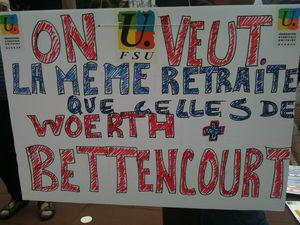 ON VEUT.
LA MÊME RETRAITE
QUE CELLES DE
WOERTH +
BETTENCOURT
U.
FSU
U.
U.